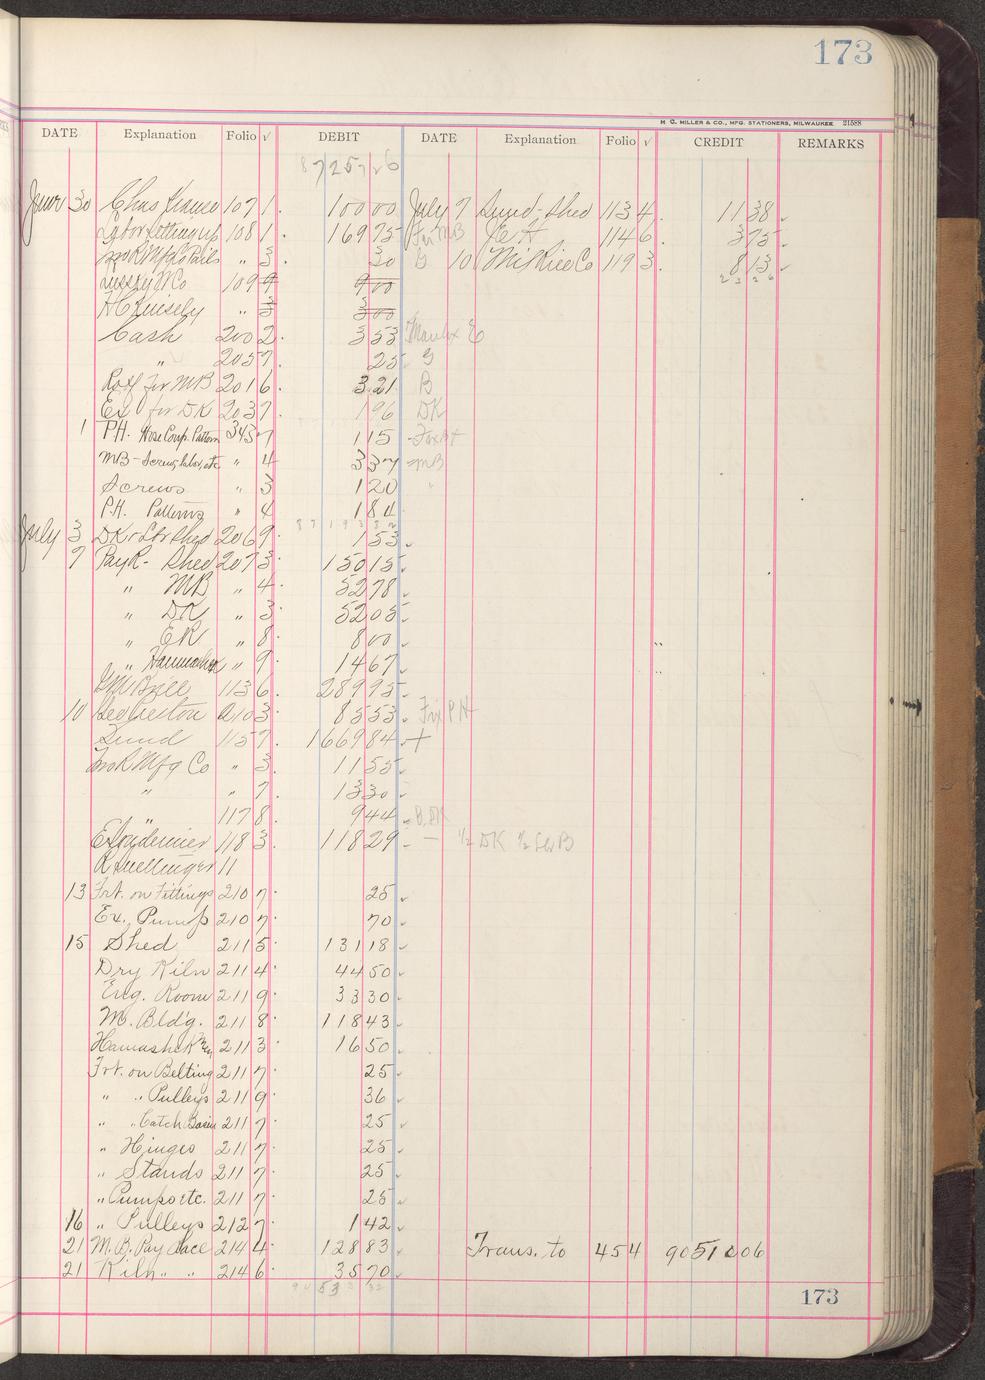 173
H. G. MILLER & CO., MFG. STATIONERS, MILWAUKEE 21588
DATE Explanation Folio √ DEBIT DATE Explanation Folio √ CREDIT REMARKS
June 30 Chas Krause 107 1 100 00 July 7 Sund - Shed 113 4 11 38
Labor Setting up 108 1 169 75 For MB 114 6 3 75
" 3 30 G 10 Mi Rice Co 119 3 8 13
109 9 9 00
H Knisely " 3 3 00
Cash 200 2 3 53 E
" 205 7 25 G
Roof for MB 201 6 3 21 B
Ex for DK 203 7 1 96 DK
1 P.H. Hose Coup. Pattern 343 7 1 15
MB - Screws, labor, etc " 4 3 37 MB
Screws " 3 1 20 "
P.H. Patterns " 4 1 84
July 3 DK + Lbr Shed 206 9 1 53
7 Pay R - Shed 207 3 150 15
" MB " 4 52 78
" DK " 3 52 05
" ER " 8 8 00
" Hamachek " 9 14 67
113 6 289 95
10 Geo Preston 210 3 85 53 Fix PH
Sund 115 7 1669 84 +
Jno R Mfg Co " 3 11 55
" " 7 13 30
" 117 8 9 44 B, DK
118 3 118 29 - 1/2 DK 1/2
11
13 Frt. on Fittings 210 7 25
Ex., Pump 210 7 70
15 Shed 211 5 131 18
Dry Kiln 211 4 44 50
Eng. Room 211 9 33 30
M. Bld'g. 211 8 118 43
Hamachek 211 3 16 50
Frt. on Belting 211 7 25
" " Pulleys 211 9 36
" " Catch Basin 211 7 25
" Hinges 211 7 25
" Stands 211 7 25
" Pump etc. 211 7 25
16 " Pulleys 212 7 1 42
21 M. B. Pay 214 4 128 83 Trans. to 454 90510 06
21 Kiln " " 214 6 35 70
173